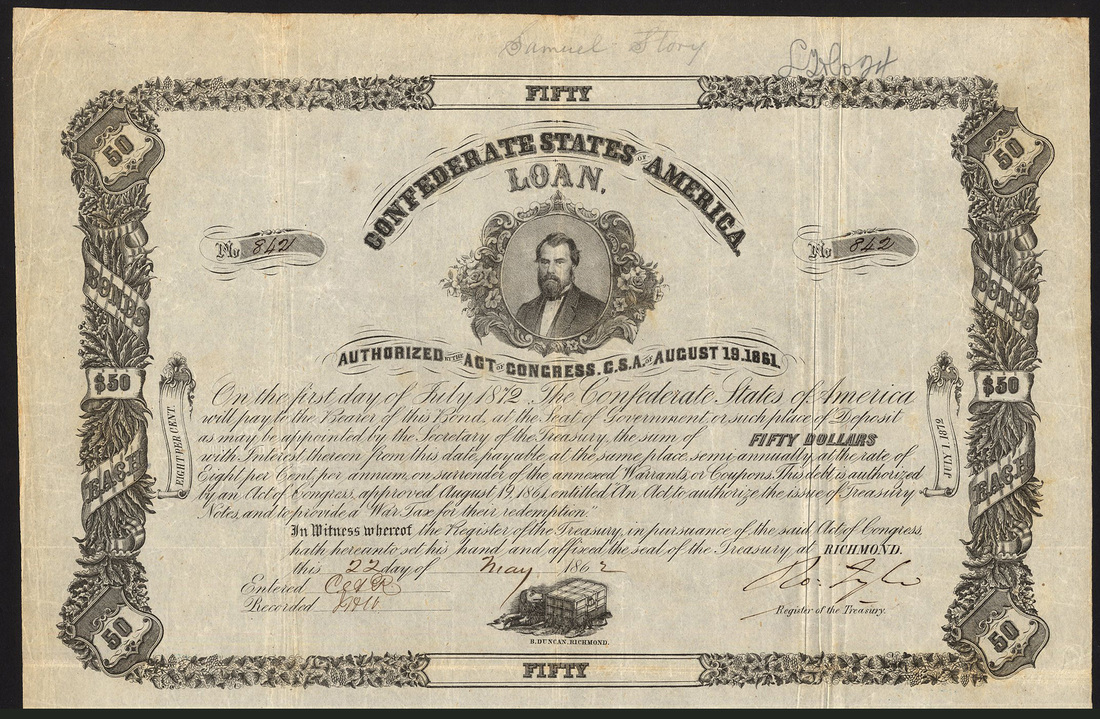 Samuel Story
FIFTY
50
50
CONFEDERATE STATES OF AMERICA
LOAN,
No 842
No 842
BONDS
BONDS
AUTHORIZED BY THE ACT OF CONGRESS. C.S.A. OF AUGUST 19.1861.
$50
$50
EIGHT PER CENT.
JULY 1 1872
EACH
EACH
On the first day of July 1872 The Confederate States of America
will pay to the Bearer of this Bond, at the Seat of Government, or such place of Deposit
as may be appointed by the Secretary of the Treasury, the sum of FIFTY DOLLARS
with Interest thereon from this date, payable at the same place, semi-annually, at the rate of
Eight per Cent, per annum, on surrender of the annexed Warrants, or Coupons. This debt is authorized
by an Act of Congress, approved August 19, 1861, entitled "An Act to authorize the issue of Treasury
Notes, and to provide a War Tax for their redemption."
In Witness whereof the Register of the Treasury, in pursuance of the said Act of Congress,
hath hereunto set his hand and affixed the seal of the Treasury at RICHMOND.
this 22 day of May 1862
Entered
Recorded
Ro: Tyler
Register of the Treasury.
B. DUNCAN. RICHMOND.
50
50
FIFTY